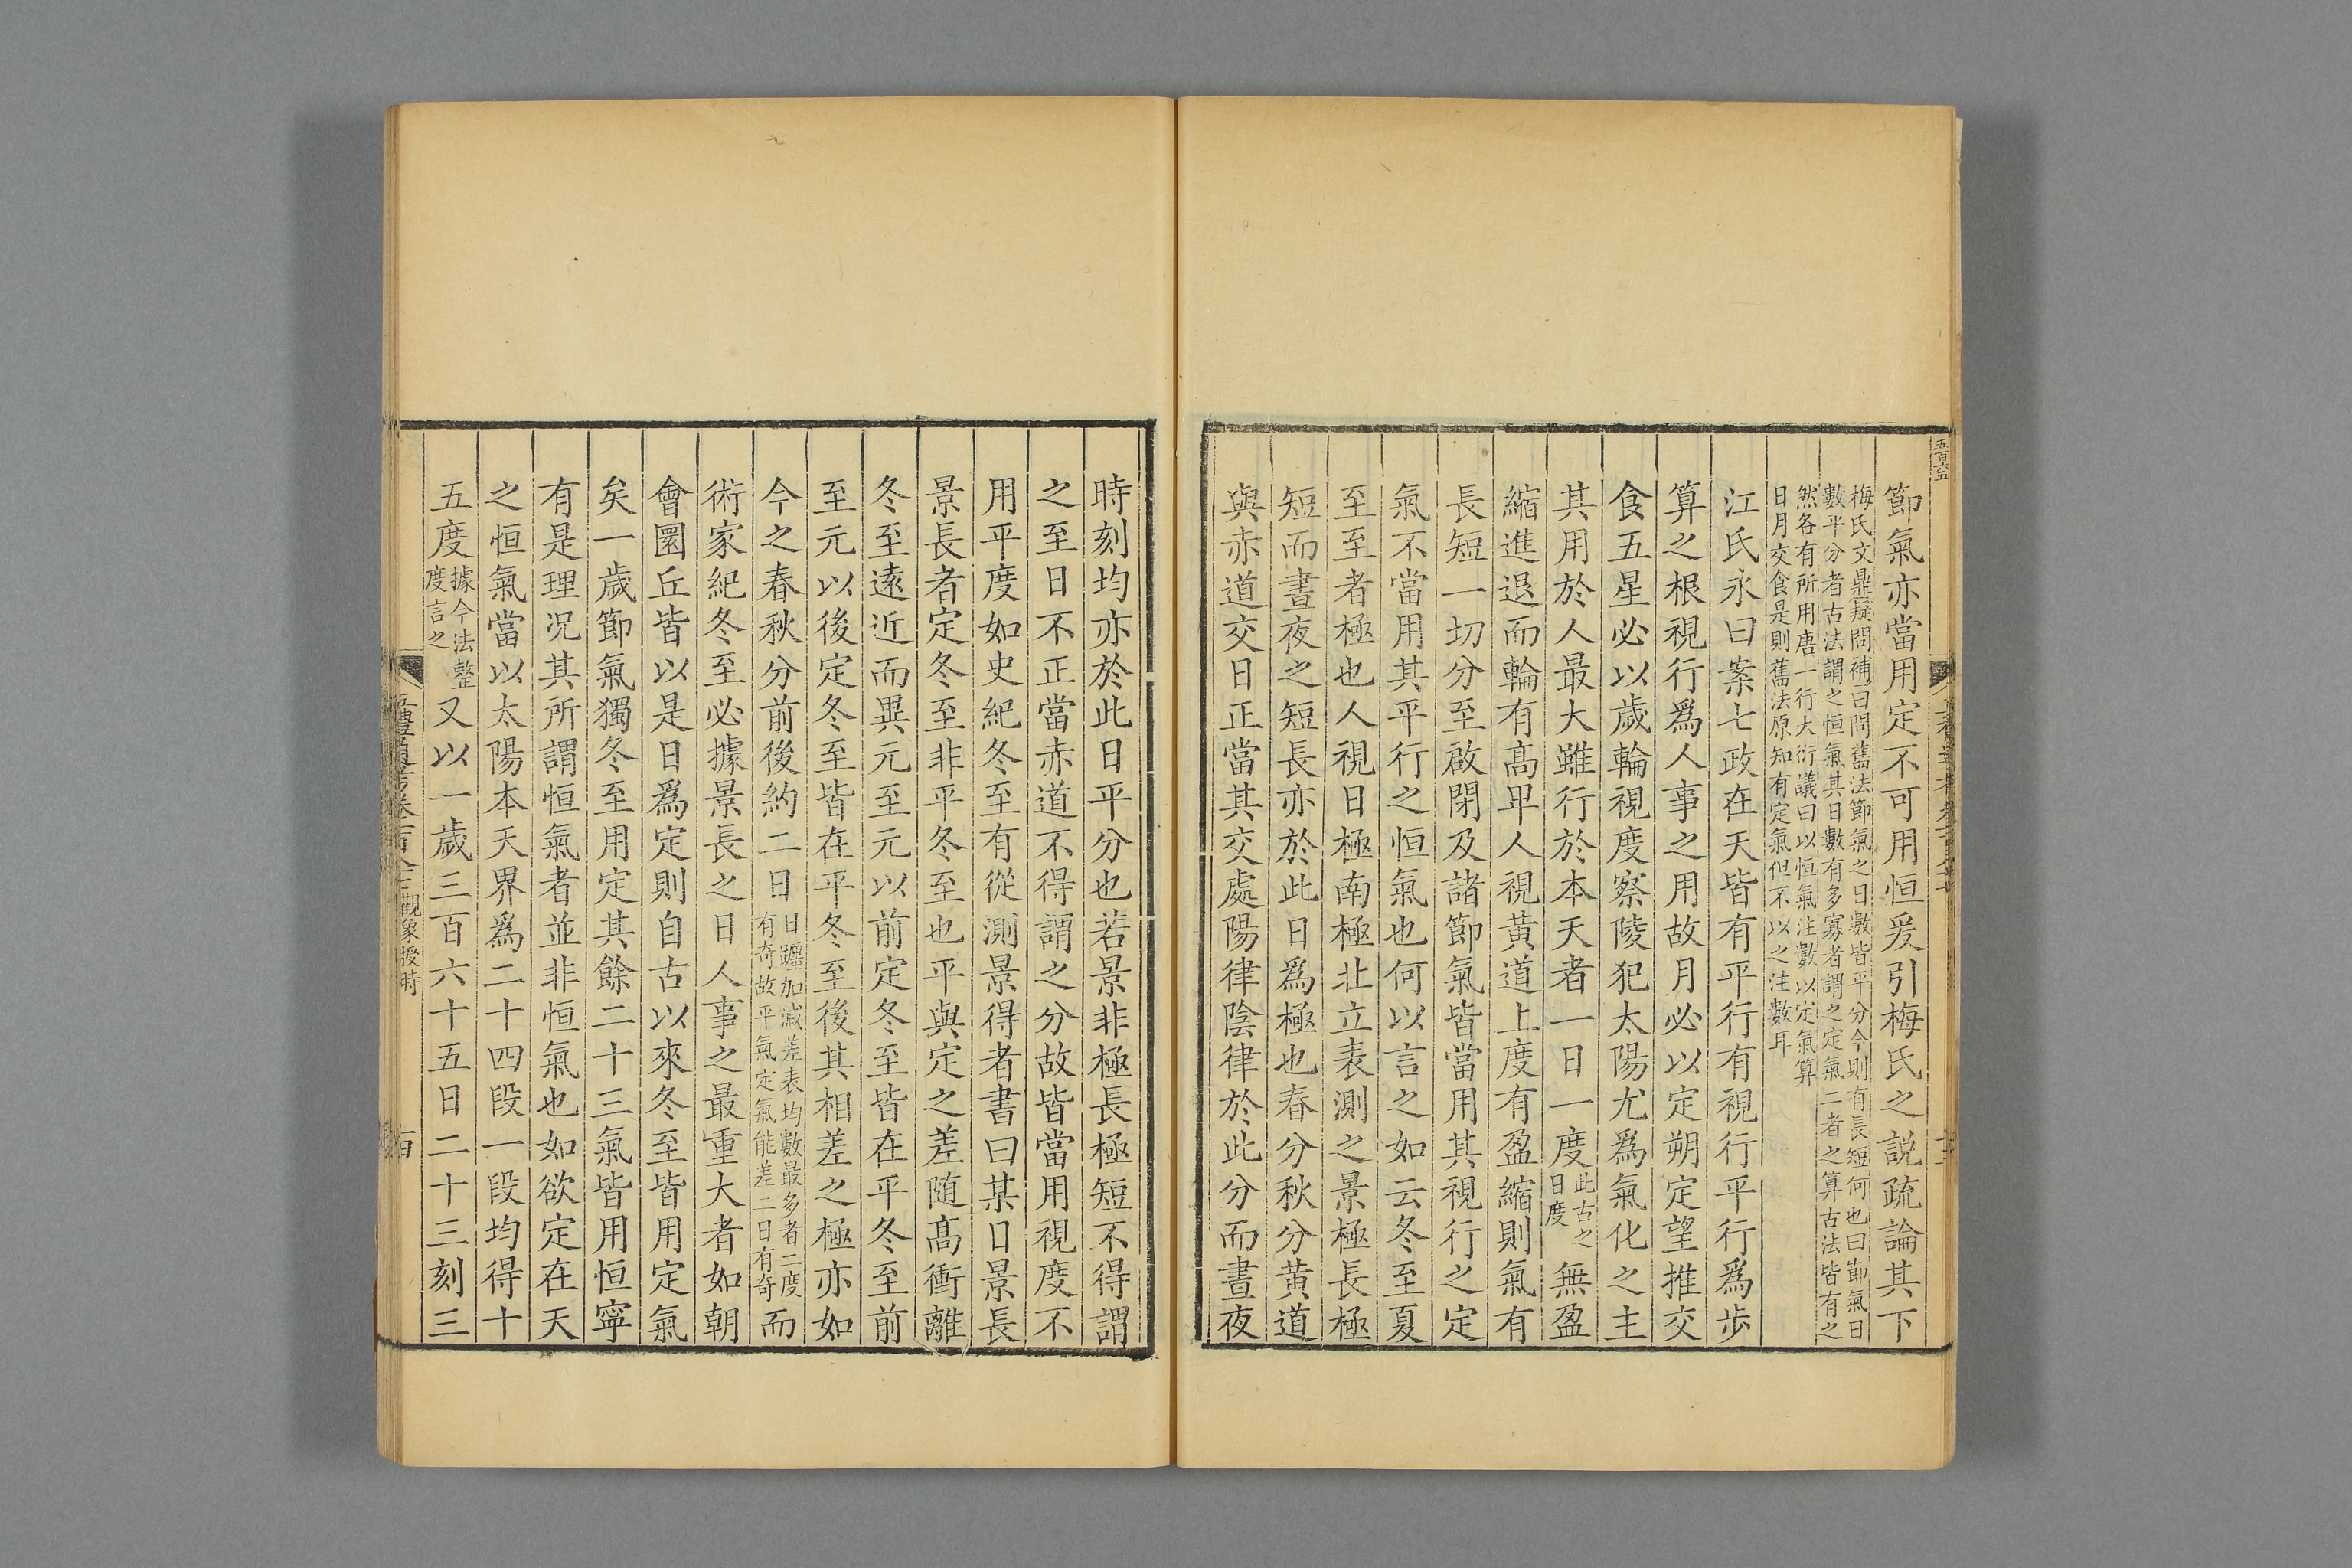 五百六五
節氣亦當用定不可用恒爰引梅氏之説疏論其下
梅氏文鼎疑問補曰問舊法節氣之日數皆平分今則有長短何也曰節氣日
數平分者古法謂之恒氣其日數有多寡者謂之定氣二者之算古法皆有之
然各有所用唐一行大衍議曰以恒氣注數以定氣算
日月交食是則舊法原知有定氣但不以之注數耳
江氏永曰案七政在天皆有平行有視行平行爲步
算之根視行爲人事之用故月必以定朔定望推交
食五星必以歲輪視度察陵犯太陽尤爲氣化之主
其用於人最大雖行於本天者一日一度此古之日度無盈
縮進退而輪有高卑人視黄道上度有盈縮則氣有
長短一切分至啟閉及諸節氣皆當用其視行之定
氣不當用其平行之恒氣也何以言之如云冬至夏
至至者極也人視日極南極北立表測之景極長極
短而晝夜之短長亦於此日爲極也春分秋分黄道
與赤道交日正當其交處陽律陰律於此分而晝夜
時刻均亦於此日平分也若景非極長極短不得謂
之至日不正當赤道不得謂之分故皆當用視度不
用平度如史紀冬至有從測景得者書曰某日景長
景長者定冬至非平冬至也平與定之差随高衝離
冬至遠近而異元至元以前定冬至皆在平冬至前
至元以後定冬至皆在平冬至後其相差之極亦如
今之春秋分前後約二日日躔加減差表均數最多者二度有奇故平氣定氣能差二日有奇而
術家紀冬至必據景長之日人事之最重大者如朝
會圜丘皆以是日爲定則自古以來冬至皆用定氣
矣一歲節氣獨冬至用定其餘二十三氣皆用恒寧
有是理况其所謂恒氣者並非恒氣也如欲定在天
之恒氣當以太陽本天界爲二十四段一段均得十
五度據今法整度言之又以一歲三百六十五日二十三刻三
觀象授時